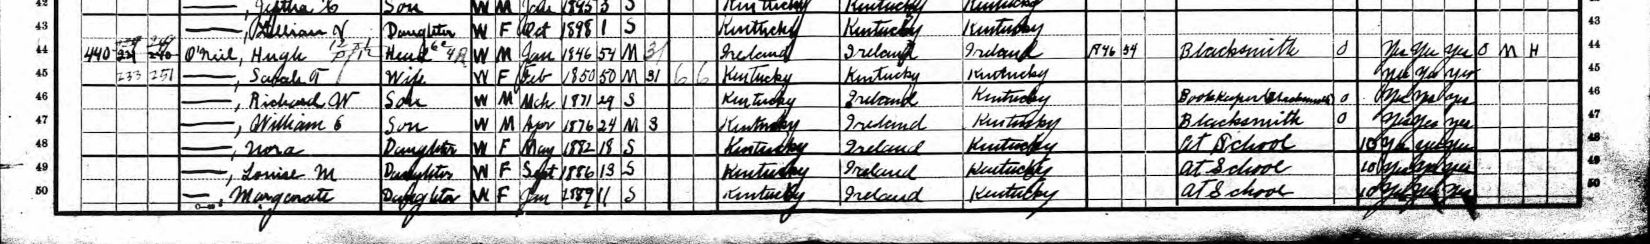 42 ——, Jeptha C Son W M 1895 3 S Kentucky Kentucky Kentucky
43 ——, Lillian V Daughter W F Oct 1898 1 S Kentucky Kentucky Kentucky 43
44 440 O'Niel, Hugh Head W M Jan 1846 54 M 31 Ireland Ireland Ireland 1846 54 Blacksmith 0 Yes Yes Yes O M H 44
45 233 251 ——, Sarah A Wife W F Feb 1850 50 M 31 6 6 Kentucky Kentucky Kentucky Yes Yes Yes 45
46 ——, Richard W Son W M Mch 1871 29 S Kentucky Ireland Kentucky Bookkeeper 0 Yes Yes Yes 46
47 ——, William E Son W M Apr 1876 24 M 3 Kentucky Ireland Kentucky Blacksmith 0 Yes Yes Yes 47
48 ——, Nora Daughter W F May 1882 18 S Kentucky Ireland Kentucky At School 10 Yes Yes Yes 48
49 ——, Louise M Daughter W F Sept 1886 13 S Kentucky Ireland Kentucky At School 10 Yes Yes Yes 49
50 ——, Margarate Daughter W F Jan 1889 11 S Kentucky Ireland Kentucky At School 10 Yes Yes Yes 50